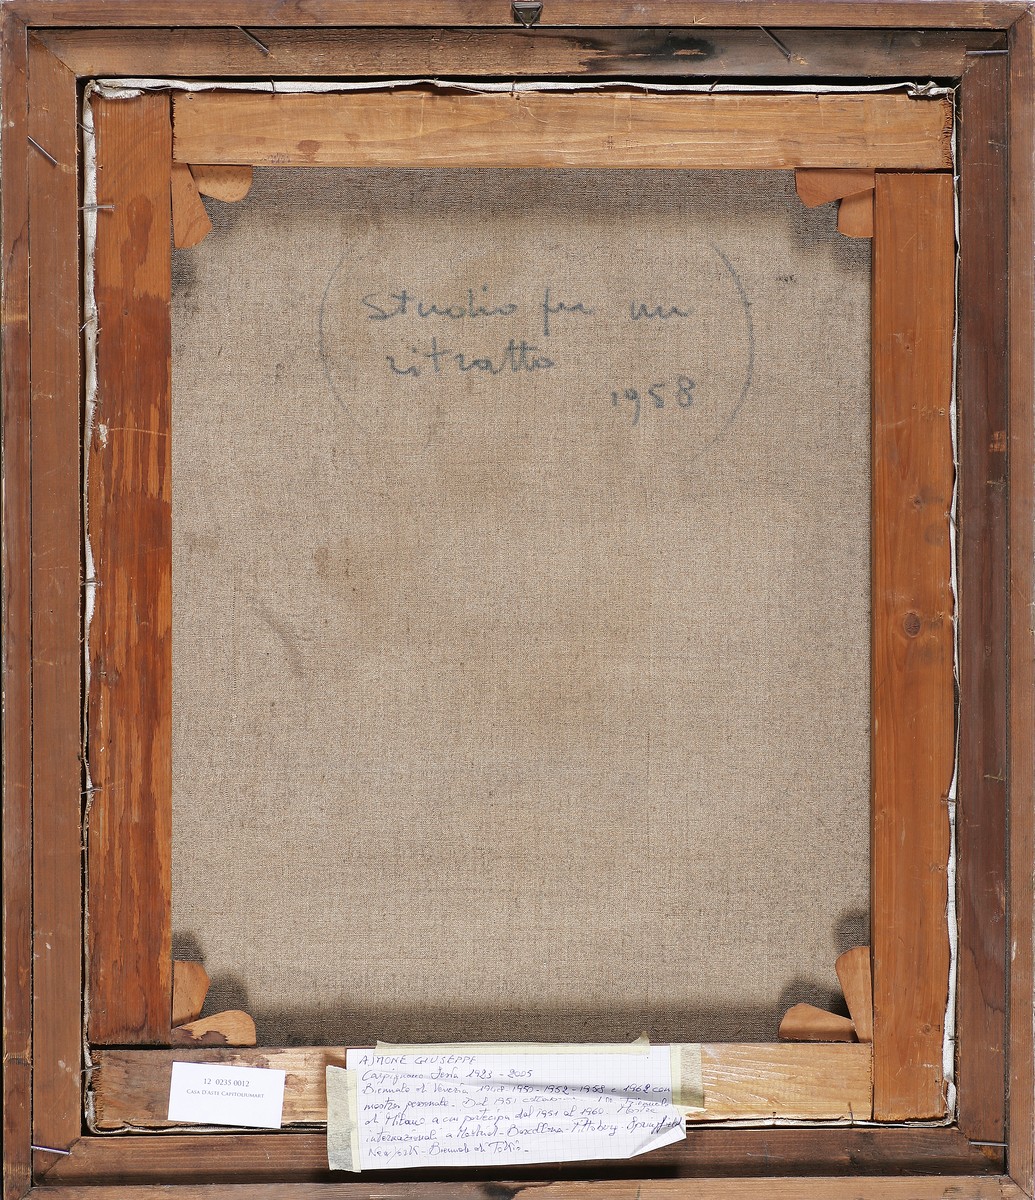 Studio per un
ritratto
1958
12 0235 0012
CASA D'ASTE CAPITOLIUMART
AJMONE GIUSEPPE
Carpignano Sesia 1923 - 2005
Biennale di Venezia 1948 1950 - 1952 - 1958 e 1962 con
mostra personale. Dal 1951 Triennale
di Milano a cui partecipa dal 1951 al 1960. Mostre
internazionali a - Barcellona - Pittsburg - Springfield
New York - Biennale di Tokio.